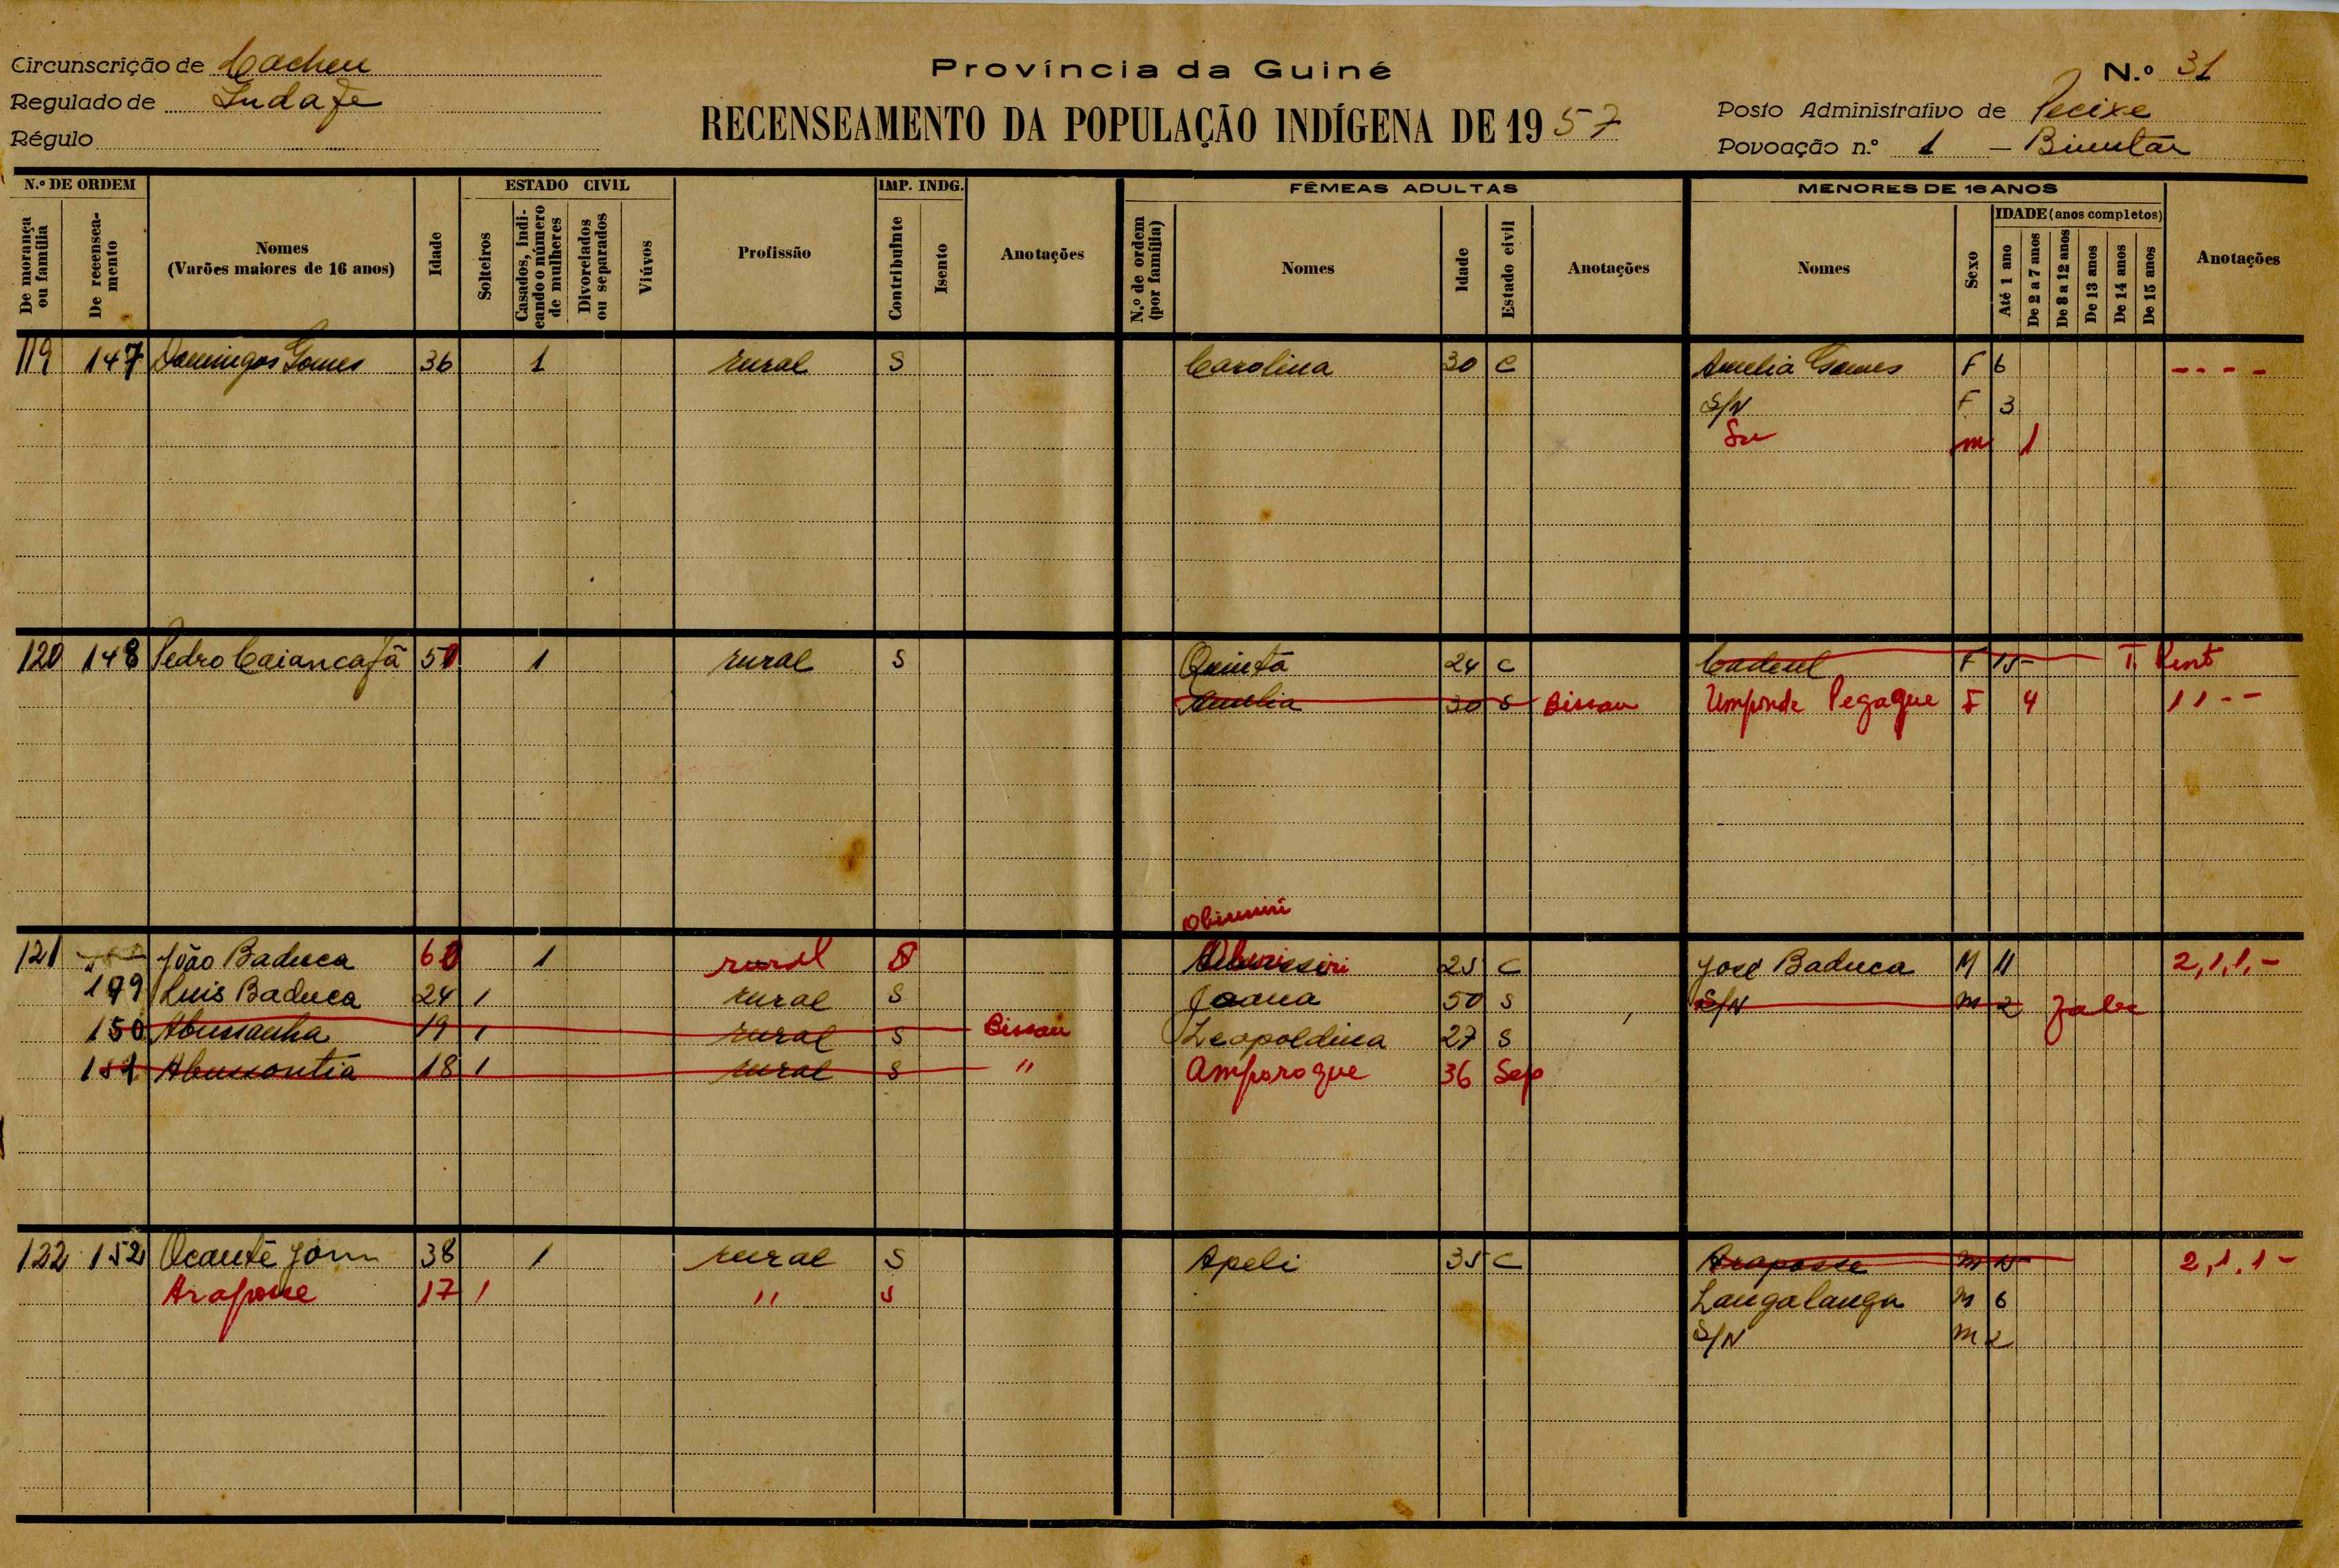 Província da Guiné
N.º 31
Circunscrição de Cacheu
Regulado de
Régulo
RECENSEAMENTO DA POPULAÇÃO INDÍGENA DE 1957
Posto Administrativo de Pecixe
Povoação n.º 1 –
N.º DE ORDEM
De morança ou família
De recenseamento
Nomes
(Varões maiores de 16 anos)
Idade
ESTADO CIVIL
Solteiros
Casados, indicando o número de mulheres
Divorciados ou separados
Viúvos
Profissão
IMP. INDG.
Contribuinte
Isento
Anotações
FÊMEAS ADULTAS
N.º de ordem (por família)
Nomes
Idade
Estado civil
Anotações
MENORES DE 16 ANOS
Nomes
Sexo
IDADE (anos completos)
Até 1 ano
De 2 a 7 anos
De 8 a 12 anos
De 13 anos
De 14 anos
De 15 anos
Anotações
119 147 Domingos Gomes 36 1 rural S Carolina 30 C Amelia Gomes F 6 - - - -
S/N F 3
m 1
120 148 Pedro Caiancafâ 50 1 rural S Quinta 24 C F 15
Amelia 30 S Bissau Umponde Pegaque F 4 1 1 - -
121 João Baduca 60 1 rural S 25 C José Baduca M 11 2,1,1,-
149 Luis Baduca 24 1 rural S Joana 50 S S/N m 2
150 Abussanha 19 1 rural S Bissau Leopoldina 27 S
151 18 1 rural S " Amparoque 36 Sep
122 152 Ocante 38 1 rural S Apeli 35 C Araposse m 15 2,1,1-
Araposse 17 1 " S Langalanga m 6
S/N m 2